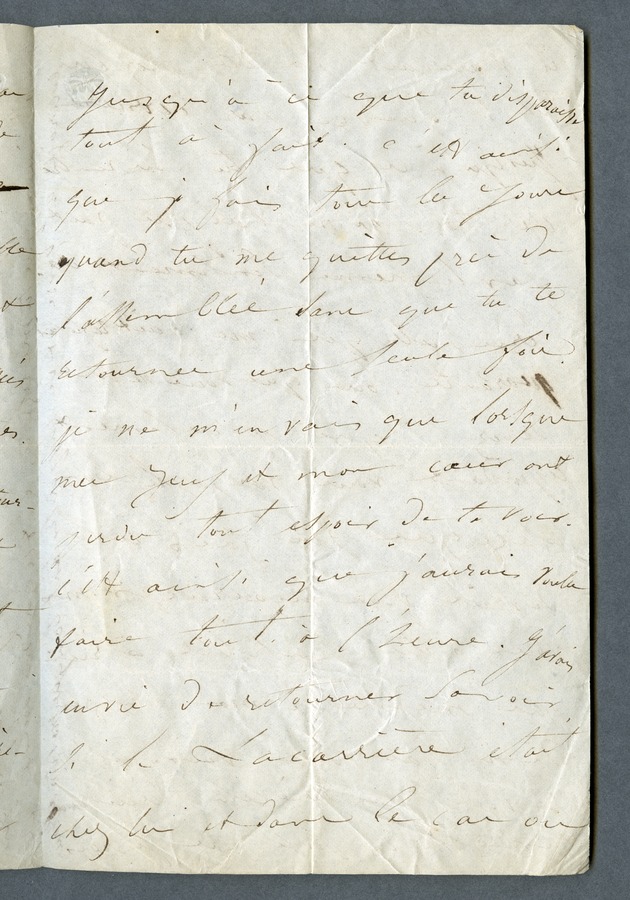 Jusqu'à ce que tu disparaisse
tout à fait. c'est ainsi
que je fais tous les jours
quand tu me quittes près de
l'assemblée sans que tu te
retournes une seule fois.
je ne m'en vais que lorsque
mes yeux et mon cœur ont
perdu tout espoir de te voir.
c'est ainsi que j'aurais voulu
faire tout à l'heure. J'avais
envie de retourner savoir
si le Lacarrière était
chez lui et dans le cas où